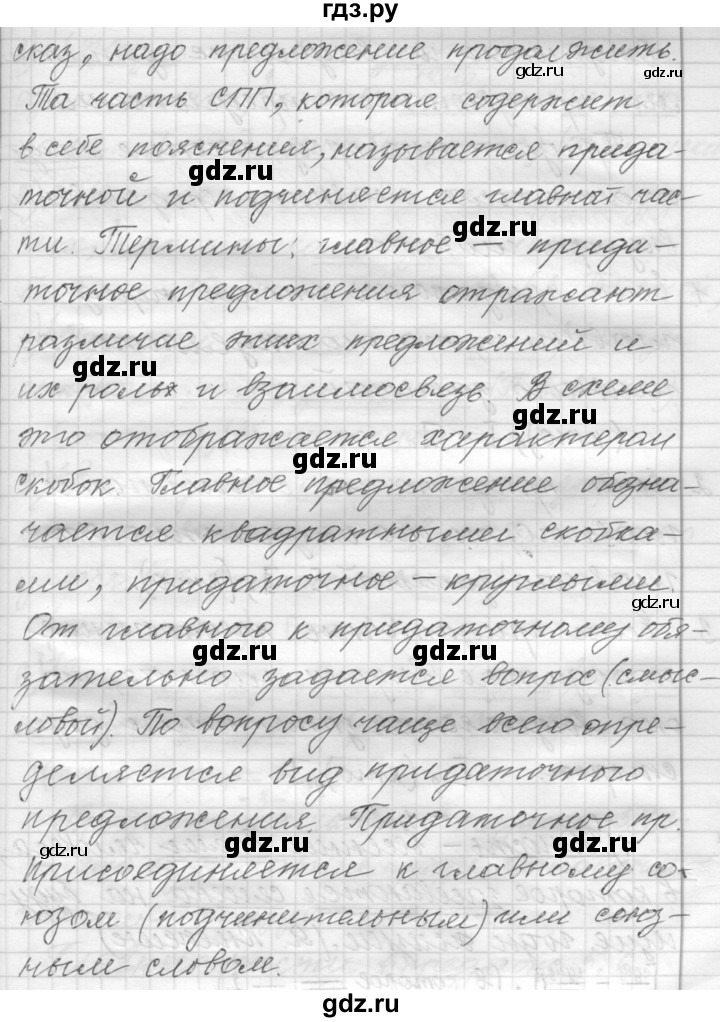 гдз.ру
сказ, надо предложение продолжить.
gdz.ru gdz.ru
Та часть СПП, которая содержит
в себе пояснения, называется прида-
gdz.ru
точной и подчиняется главной час-
gdz.ru
ти. Термины: главное — прида-
точное предложения отражают
различие этих предложений и
gdz.ru
их роль и взаимосвязь. В схеме
gdz.ru
это отображается характером
gdz.ru
скобок. Главное предложение обозна-
чается квадратными скобка-
ми, придаточное – круглыми.
gdz.ru
От главного к придаточному обя-
gdz.ru gdz.ru
зательно задается вопрос (смыс-
ловой). По вопросу чаще всего опре-
деляется вид придаточного
предложения. Придаточное пр.
gdz.ru gdz.ru gdz.ru
присоединяется к главному со-
юзом (подчинительным) или союз-
ным словом.
gdz.ru